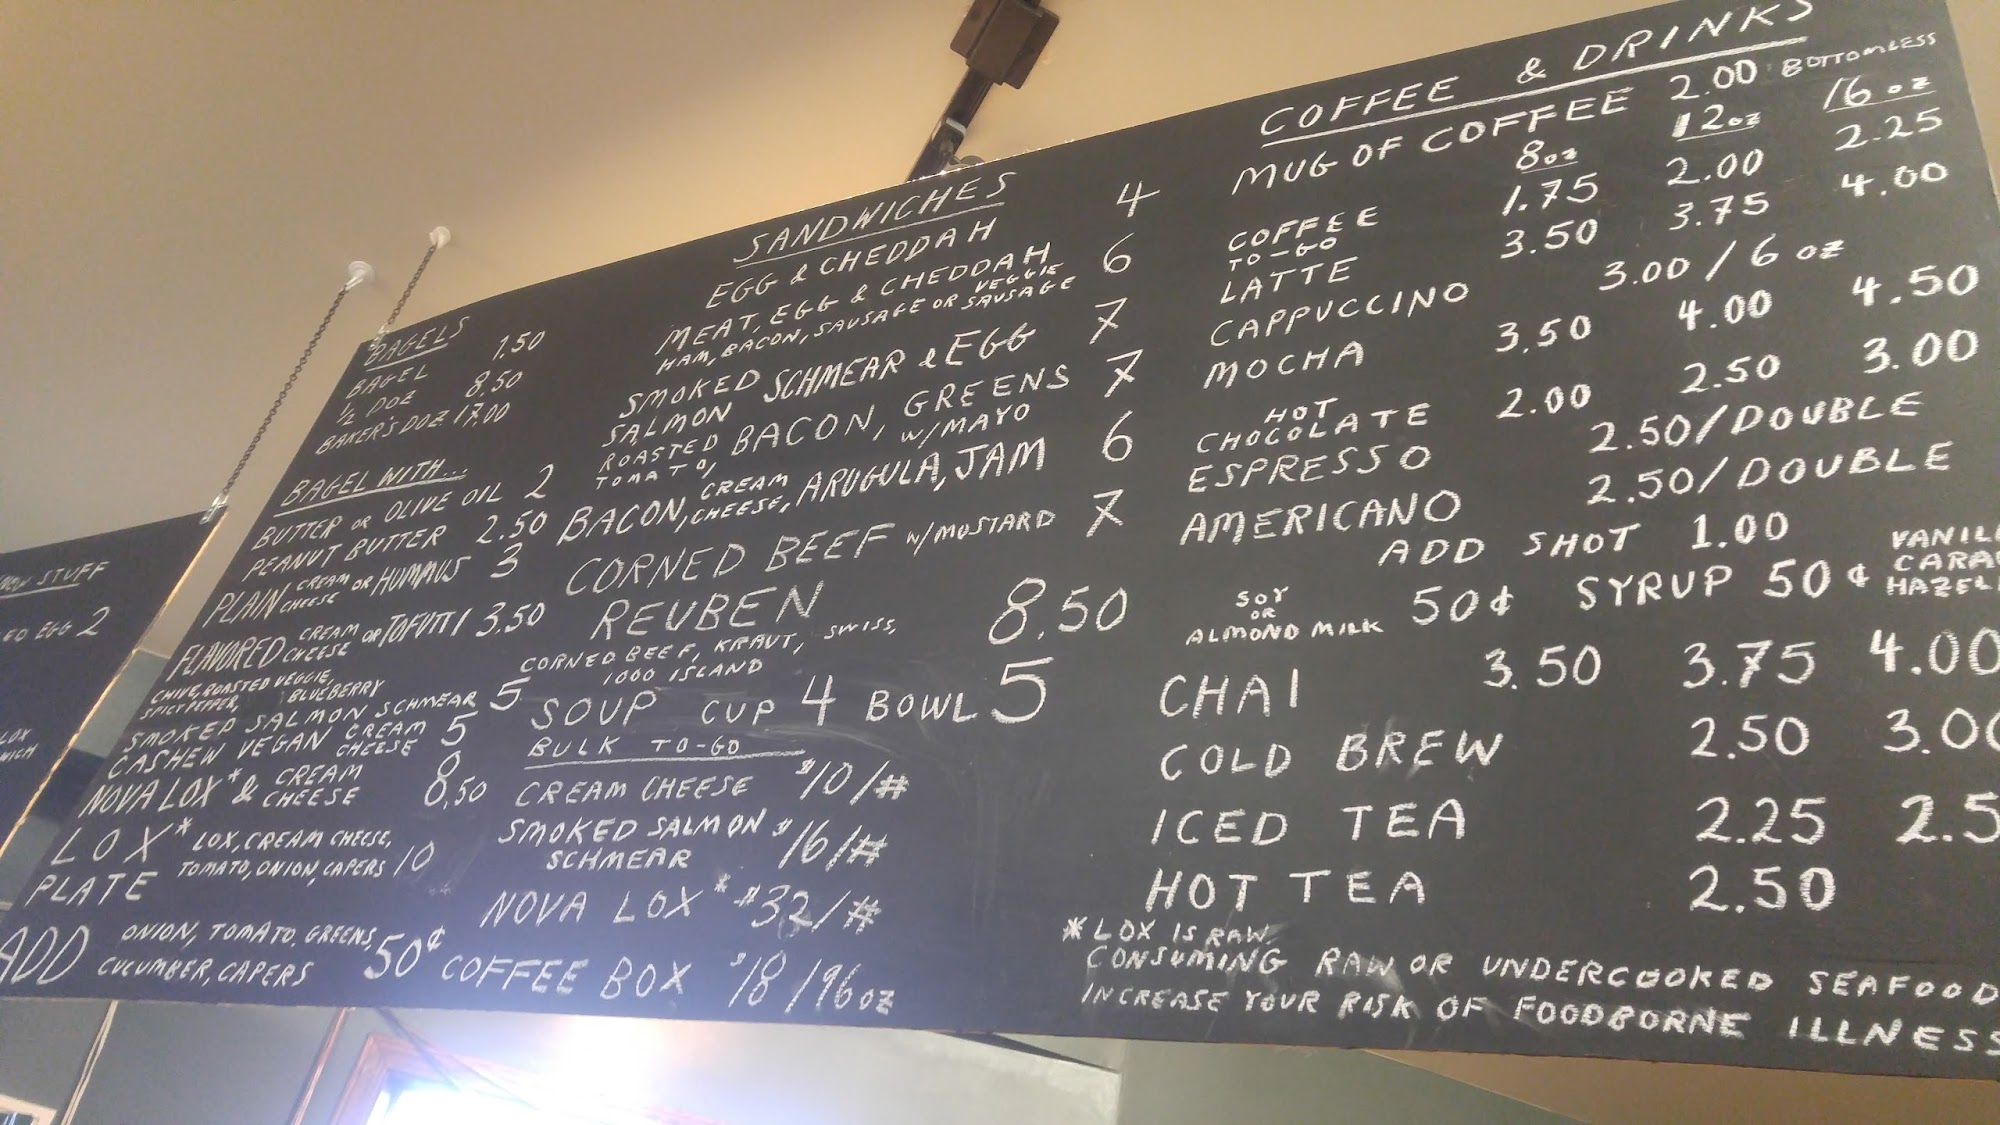 BAGELS
BAGEL 1.50
1/2 DOZ 8.50
BAKER'S DOZ 17.00
BAGEL WITH...
BUTTER OR OLIVE OIL 2
PEANUT BUTTER 2.50
PLAIN CREAM CHEESE OR HUMMUS 3
FLAVORED CREAM CHEESE OR TOFUTTI 3.50
CHIVE, ROASTED VEGGIE,
SPICY PEPPER, BLUEBERRY
SMOKED SALMON SCHMEAR 5
CASHEW VEGAN CREAM CHEESE 5
NOVA LOX* & CREAM CHEESE 8.50
LOX* PLATE LOX, CREAM CHEESE,
TOMATO, ONION, CAPERS 10
ADD ONION, TOMATO, GREENS,
CUCUMBER, CAPERS 50¢
SANDWICHES
EGG & CHEDDAH 4
MEAT, EGG & CHEDDAH 6
HAM, BACON, SAUSAGE OR VEGGIE SAUSAGE
SMOKED SALMON SCHMEAR & EGG 7
ROASTED TOMATO, BACON, GREENS W/MAYO 7
BACON, CREAM CHEESE, ARUGULA, JAM 6
CORNED BEEF W/MUSTARD 7
REUBEN 8.50
CORNED BEEF, KRAUT, SWISS,
1000 ISLAND
SOUP CUP 4 BOWL 5
BULK TO-GO
CREAM CHEESE $10/#
SMOKED SALMON SCHMEAR $16/#
NOVA LOX* $32/#
COFFEE BOX $18/96oz
COFFEE & DRINKS
MUG OF COFFEE 2.00 BOTTOMLESS
8oz 12oz 16oz
COFFEE TO-GO 1.75 2.00 2.25
LATTE 3.50 3.75 4.00
CAPPUCCINO 3.00/6 oz
MOCHA 3.50 4.00 4.50
HOT CHOCOLATE 2.00 2.50 3.00
ESPRESSO 2.50/DOUBLE
AMERICANO 2.50/DOUBLE
ADD SHOT 1.00
SOY OR ALMOND MILK 50¢ SYRUP 50¢
CHAI 3.50 3.75 4.00
COLD BREW 2.50 3.00
ICED TEA 2.25 2.5
HOT TEA 2.50
*LOX IS RAW.
CONSUMING RAW OR UNDERCOOKED SEAFOOD
INCREASE YOUR RISK OF FOODBORNE ILLNESS
STUFF
EGG 2
LOX